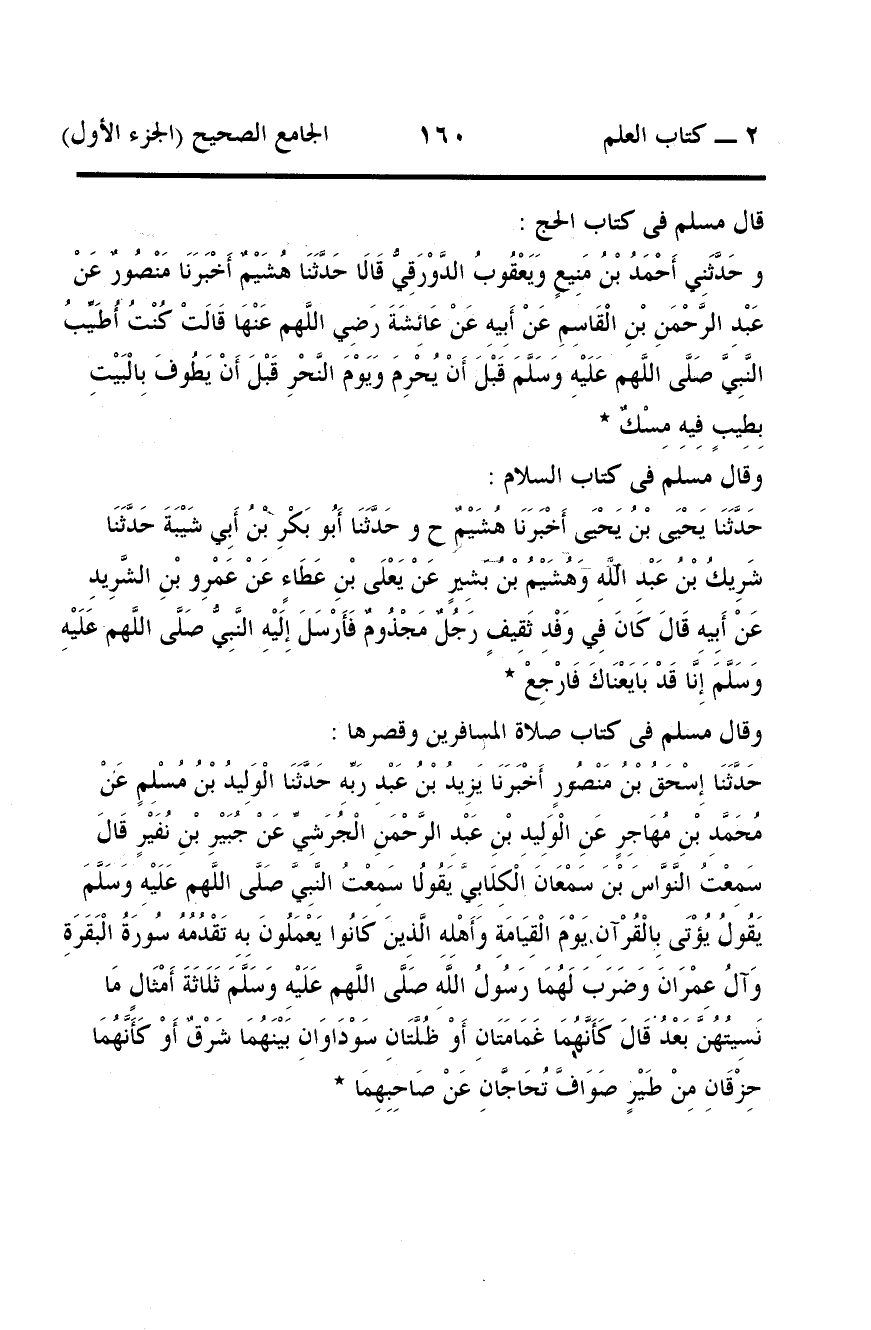 ٢ ــ كتاب العلم ١٦٠ الجامع الصحيح (الجزء الأول)
قال مسلم فى كتاب الحج :
و حَدَّثَنِي أَحْمَدُ بْنُ مَنِيعٍ وَيَعْقُوبُ الدَّوْرَقِيُّ قَالَا حَدَّثَنَا هُشَيْمٌ أَخْبَرَنَا مَنْصُورٌ عَنْ
عَبْدِ الرَّحْمَنِ بْنِ الْقَاسِمِ عَنْ أَبِيهِ عَنْ عَائِشَةَ رَضِي اللَّهم عَنْهَا قَالَتْ كُنْتُ أُطَيِّبُ
النَّبِيَّ صَلَّى اللَّهم عَلَيْهِ وَسَلَّمَ قَبْلَ أَنْ يُحْرِمَ وَيَوْمَ النَّحْرِ قَبْلَ أَنْ يَطُوفَ بِالْبَيْتِ
بِطِيبٍ فِيهِ مِسْكٌ *
وقال مسلم فى كتاب السلام :
حَدَّثَنَا يَحْيَى بْنُ يَحْيَى أَخْبَرَنَا هُشَيْمٌ ح و حَدَّثَنَا أَبُو بَكْرِ بْنُ أَبِي شَيْبَةَ حَدَّثَنَا
شَرِيكُ بْنُ عَبْدِ اللَّهِ وَهُشَيْمُ بْنُ بَشِيرٍ عَنْ يَعْلَى بْنِ عَطَاءٍ عَنْ عَمْرِو بْنِ الشَّرِيدِ
عَنْ أَبِيهِ قَالَ كَانَ فِي وَفْدِ ثَقِيفٍ رَجُلٌ مَجْذُومٌ فَأَرْسَلَ إِلَيْهِ النَّبِيُّ صَلَّى اللَّهم عَلَيْهِ
وَسَلَّمَ إِنَّا قَدْ بَايَعْنَاكَ فَارْجِعْ *
وقال مسلم فى كتاب صلاة المسافرين وقصرها :
حَدَّثَنَا إِسْحَقُ بْنُ مَنْصُورٍ أَخْبَرَنَا يَزِيدُ بْنُ عَبْدِ رَبِّهِ حَدَّثَنَا الْوَلِيدُ بْنُ مُسْلِمٍ عَنْ
مُحَمَّدِ بْنِ مُهَاجِرٍ عَنِ الْوَلِيدِ بْنِ عَبْدِ الرَّحْمَنِ الْجُرَشِيِّ عَنْ جُبَيْرِ بْنِ نُفَيْرٍ قَالَ
سَمِعْتُ النَّوَّاسَ بْنَ سَمْعَانَ الْكِلَابِيَّ يَقُولُا سَمِعْتُ النَّبِيَّ صَلَّى اللَّهم عَلَيْهِ وَسَلَّمَ
يَقُولُ يُؤْتَى بِالْقُرْآنِ يَوْمَ الْقِيَامَةِ وَأَهْلِهِ الَّذِينَ كَانُوا يَعْمَلُونَ بِهِ تَقْدُمُهُ سُورَةُ الْبَقَرَةِ
وَآلُ عِمْرَانَ وَضَرَبَ لَهُمَا رَسُولُ اللَّهِ صَلَّى اللَّهم عَلَيْهِ وَسَلَّمَ ثَلَاثَةَ أَمْثَالٍ مَا
نَسِيتُهُنَّ بَعْدُ قَالَ كَأَنَّهُمَا غَمَامَتَانِ أَوْ ظُلَّتَانِ سَوْدَاوَانِ بَيْنَهُمَا شَرْقٌ أَوْ كَأَنَّهُمَا
حِزْقَانِ مِنْ طَيْرٍ صَوَافَّ تُحَاجَّانِ عَنْ صَاحِبِهِمَا *